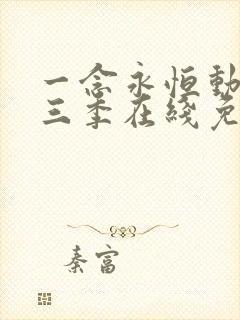 一念永恒動
三季在綫免
秦富